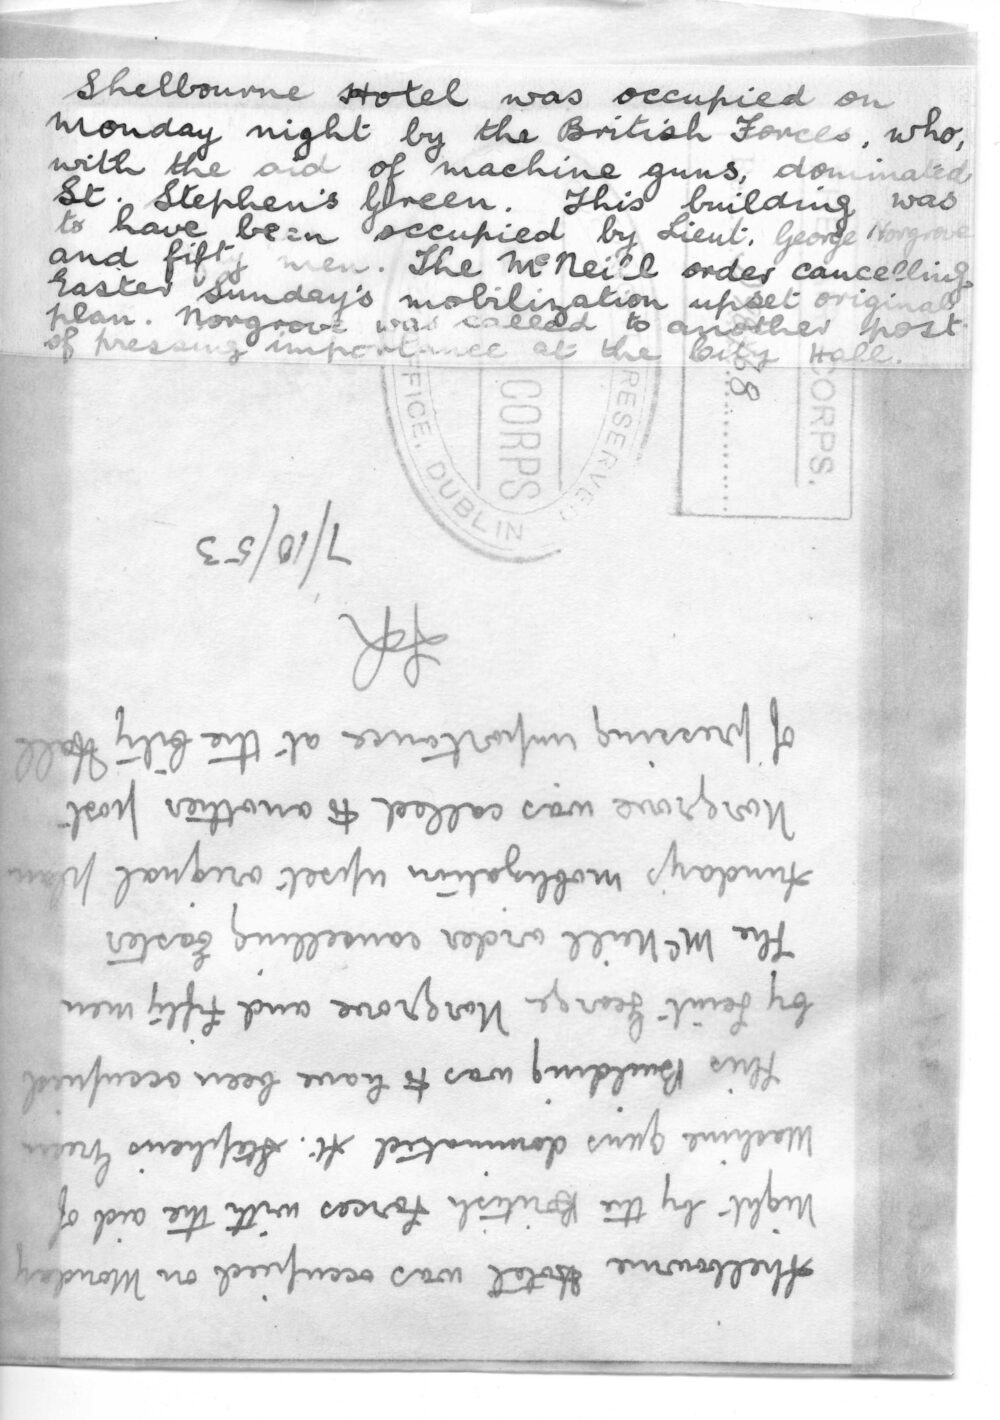 Shelbourne Hotel was occupied on
Monday night by the British Forces, who,
with the aid of machine guns, dominated
St. Stephen's Green. This building was
to have been occupied by Lieut. George Norgrove
and fifty men. The McNeill order cancelling
Easter Sunday's mobilization upset original
plan. Norgrove was called to another post
of pressing importance at the City Hall.
CORPS
RESERVE
OFFICE, DUBLIN
CORPS.
38
7/10/53
Shelbourne Hotel was occupied on Monday
Night by the British Forces with the aid of
Machine guns dominated St. Stephens Green
This Building was to have been occupied
by Leiut George Norgrove and fifty men
The McNeill order cancelling Easter
Sunday's moblization upset orignal plan
Norgrove was called to another post
of pressing importance at the City Hall